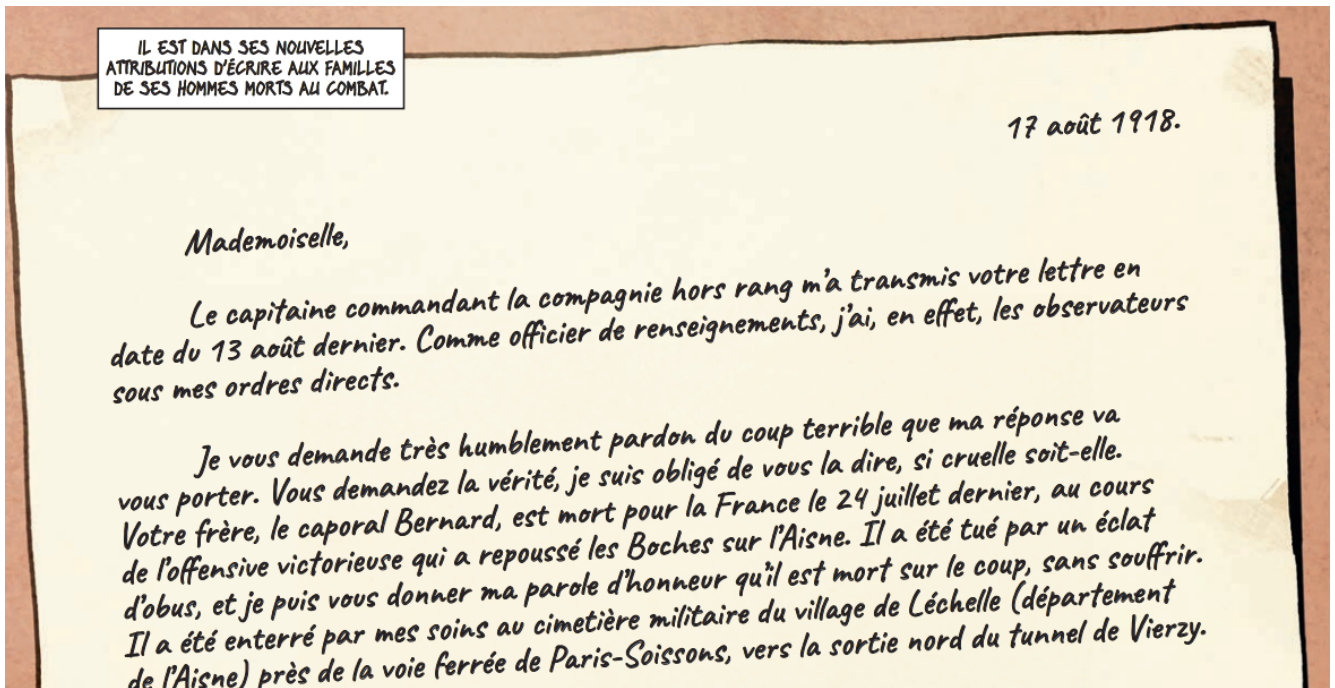 IL EST DANS SES NOUVELLES
ATTRIBUTIONS D'ÉCRIRE AUX FAMILLES
DE SES HOMMES MORTS AU COMBAT.
17 août 1918.
Mademoiselle,
Le capitaine commandant la compagnie hors rang m'a transmis votre lettre en
date du 13 août dernier. Comme officier de renseignements, j'ai, en effet, les observateurs
sous mes ordres directs.
Je vous demande très humblement pardon du coup terrible que ma réponse va
vous porter. Vous demandez la vérité, je suis obligé de vous la dire, si cruelle soit-elle.
Votre frère, le caporal Bernard, est mort pour la France le 24 juillet dernier, au cours
de l'offensive victorieuse qui a repoussé les Boches sur l'Aisne. Il a été tué par un éclat
d'obus, et je puis vous donner ma parole d'honneur qu'il est mort sur le coup, sans souffrir.
Il a été enterré par mes soins au cimetière militaire du village de Léchelle (département
de l'Aisne) près de la voie ferrée de Paris-Soissons, vers la sortie nord du tunnel de Vierzy.